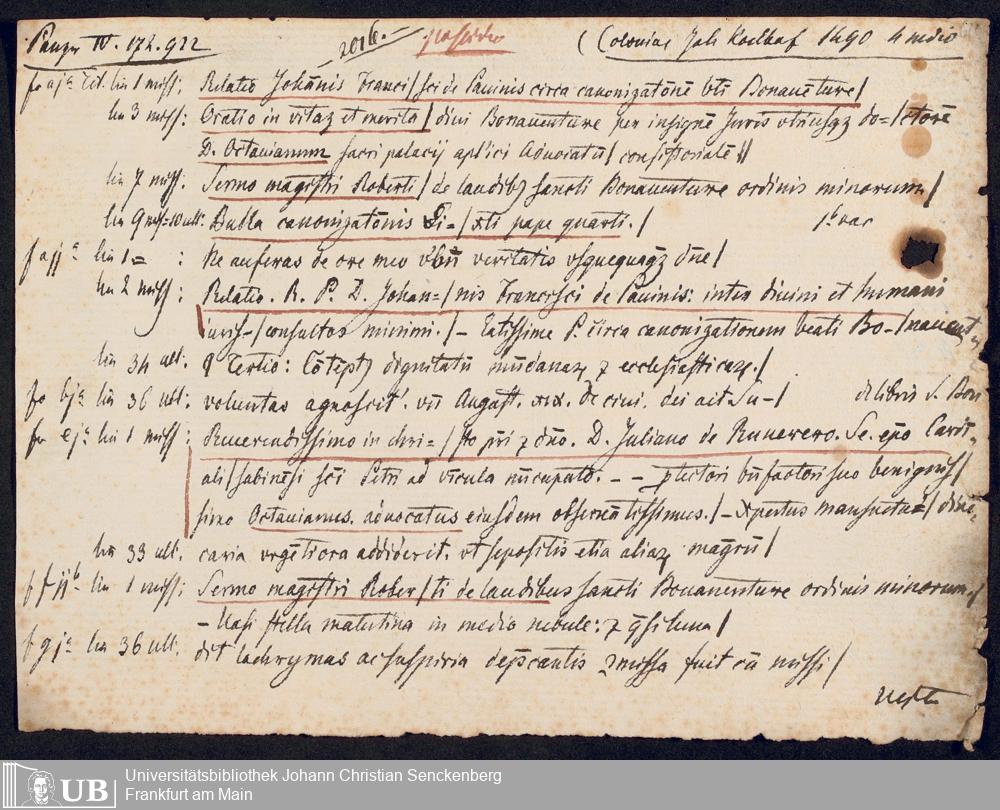 Panzer IV. 172. 922 2016. (Coloniae Joh Koelhof 1490 4 medio
fo aja tit. lin 1 miss: Relatio Johānis Franci/sci de Pauinis circa canonizatōnē bti Bonauēture/
lin 3 miss: Oratio in vitaz et merita/ diui Bonauenture per insignē Juris vtriusqz do=/ctorē
D. Octauianum sacri palacij apl'ici Aduocatū/ consistorialē//
lin 7 miss. Sermo magistri Roberti/ de laudibz sancti Bonauenture ordinis minorum/
lin 9 miss=10 ult: Bulla canonizatōnis Si=/xti pape quarti./ 1b vac
f ajja lin 1= : Ne auferas de ore meo v'bū veritatis vsquequaqz dne/
lin 2 miss: Relatio. R. P. D. Johan=/nis Francisci de Pauinis: inter diuini et humani
iuris-/consultos minimi./- Eatissime P. circa canonizationem beati Bo-/nauent
lin 34 ult. Tertio: Cōtēptz dignitatū mūdanaz z ecclesiasticaz./
fo bja lin 36 ult: voluntas agnoscit'. vn̄ August. xix. de ciui. dei ait Su-/ de libris S. Bon
fo eja lin 1 miss: Reuerendissimo in chri=/sto p̄ri z dn̄o. D. Juliano de Ruuerero. Se. ep̄o Cardi-
ali/sabinēsi sc̄i Petri ad vīcula nūcupato. - - ptectori bn̄factori suo benignis/
simo Octauianus. aduocatus eiusdem obseruātissimus./- Xpertus mansuetu=/dine
lin 33 ult. caria vrgētiora addiderit. vt sepositis etiā aliaz magrū/
f fjjb lin 1 miss: Sermo magistri Rober/ti de laudibus sancti Bonauenture ordinis minorum./
- Uasi stella matutina in medio nebule: z q̄si luna/
f gja lin 36 ult. dit lachrymas ac suspiria dep̄cantis missa fuit cū missi/
Universitätsbibliothek Johann Christian Senckenberg
Frankfurt am Main
UB